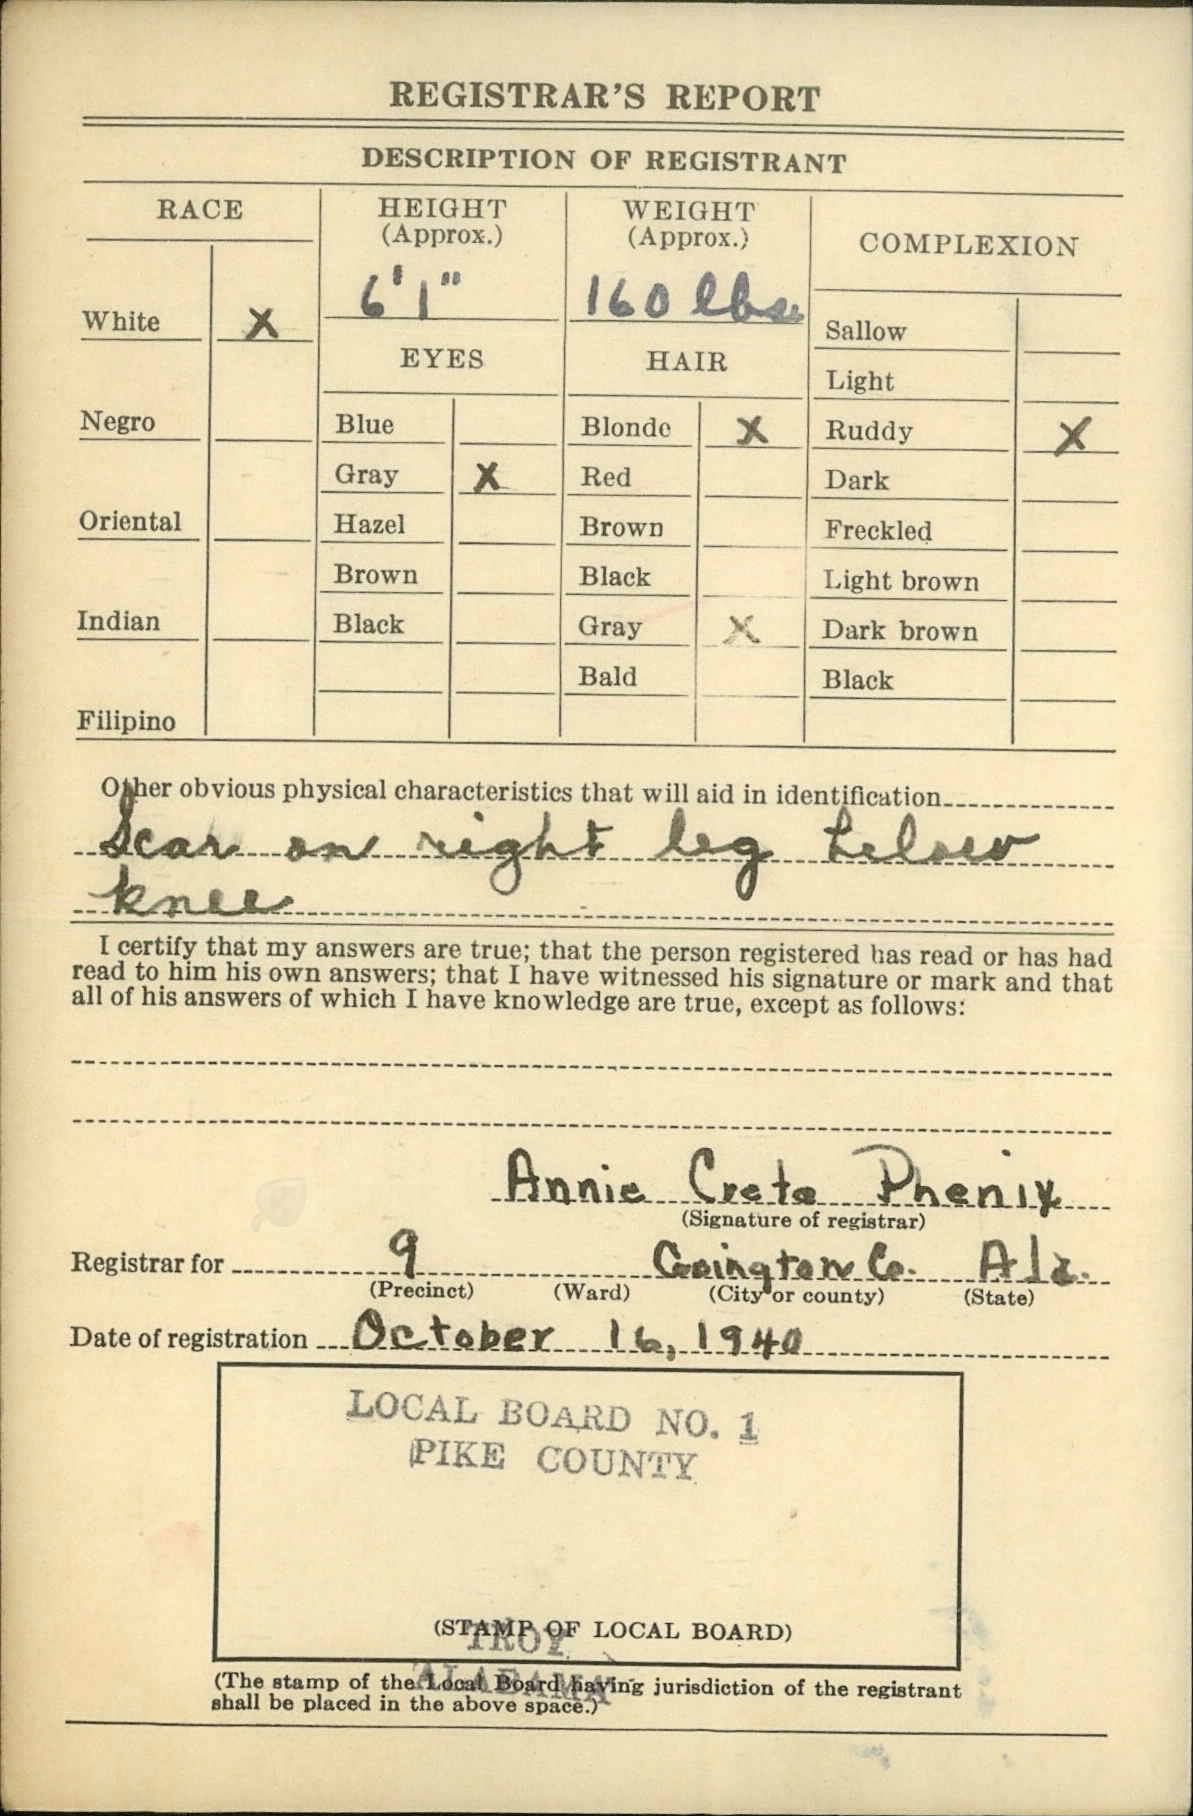 REGISTRAR'S REPORT
DESCRIPTION OF REGISTRANT
RACE
HEIGHT
(Approx.)
WEIGHT
(Approx.)
COMPLEXION
6'1"
160 lbs.
White X
EYES
HAIR
Sallow
Light
Negro
Blue
Blonde X
Ruddy X
Gray X
Red
Dark
Oriental
Hazel
Brown
Freckled
Brown
Black
Light brown
Indian
Black
Gray X
Dark brown
Bald
Black
Filipino
Other obvious physical characteristics that will aid in identification
Scar on right leg below
knee
I certify that my answers are true; that the person registered has read or has had
read to him his own answers; that I have witnessed his signature or mark and that
all of his answers of which I have knowledge are true, except as follows:
Annie Creta Phenix
(Signature of registrar)
Registrar for 9 Covington Co. Ala.
(Precinct) (Ward) (City or county) (State)
Date of registration October 16, 1940
LOCAL BOARD NO. 1
PIKE COUNTY
(STAMP OF LOCAL BOARD)
TROY
ALABAMA
(The stamp of the Local Board having jurisdiction of the registrant
shall be placed in the above space.)